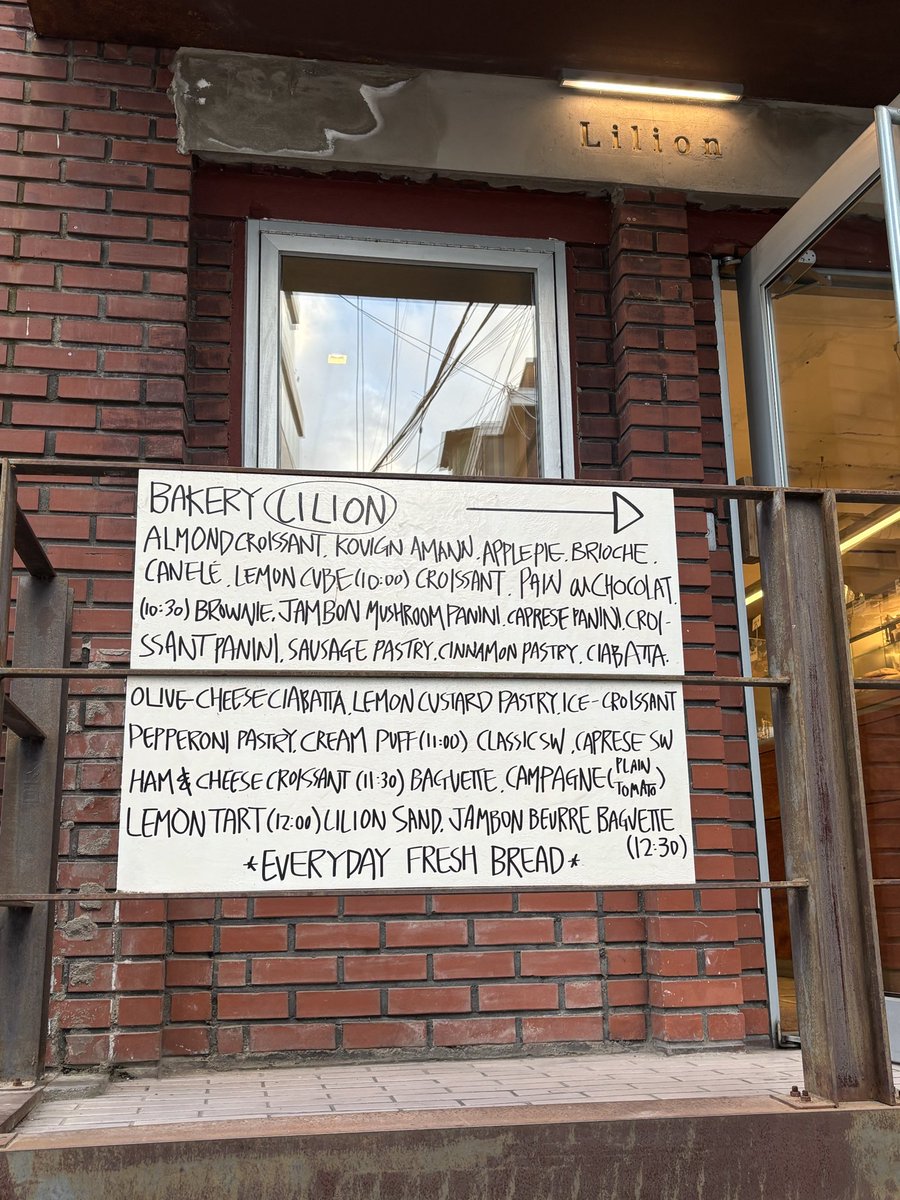 Lilion
BAKERY LILION
ALMOND CROISSANT. KOUIGN AMANN. APPLEPIE. BRIOCHE.
CANELÉ. LEMON CUBE (10:00) CROISSANT. PAIN au CHOCOLAT.
(10:30) BROWNIE. JAMBON MUSHROOM PANINI. CAPRESE PANINI. CROI-
SSANT PANINI. SAUSAGE PASTRY. CINNAMON PASTRY. CIABATTA.
OLIVE-CHEESE CIABATTA. LEMON CUSTARD PASTRY. ICE-CROISSANT
PEPPERONI PASTRY. CREAM PUFF (11:00) CLASSIC SW. CAPRESE SW
HAM & CHEESE CROISSANT (11:30) BAGUETTE. CAMPAGNE (PLAIN TOMATO)
LEMON TART (12:00) LILION SAND. JAMBON BEURRE BAGUETTE
(12:30)
*EVERYDAY FRESH BREAD*